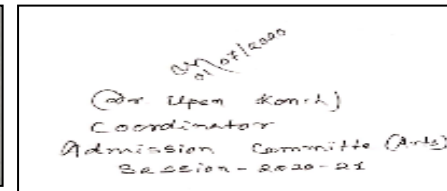 01/07/2020
(Dr Upen Konch)
Coordinator
Admission Committe (Arts)
Session - 2020-21